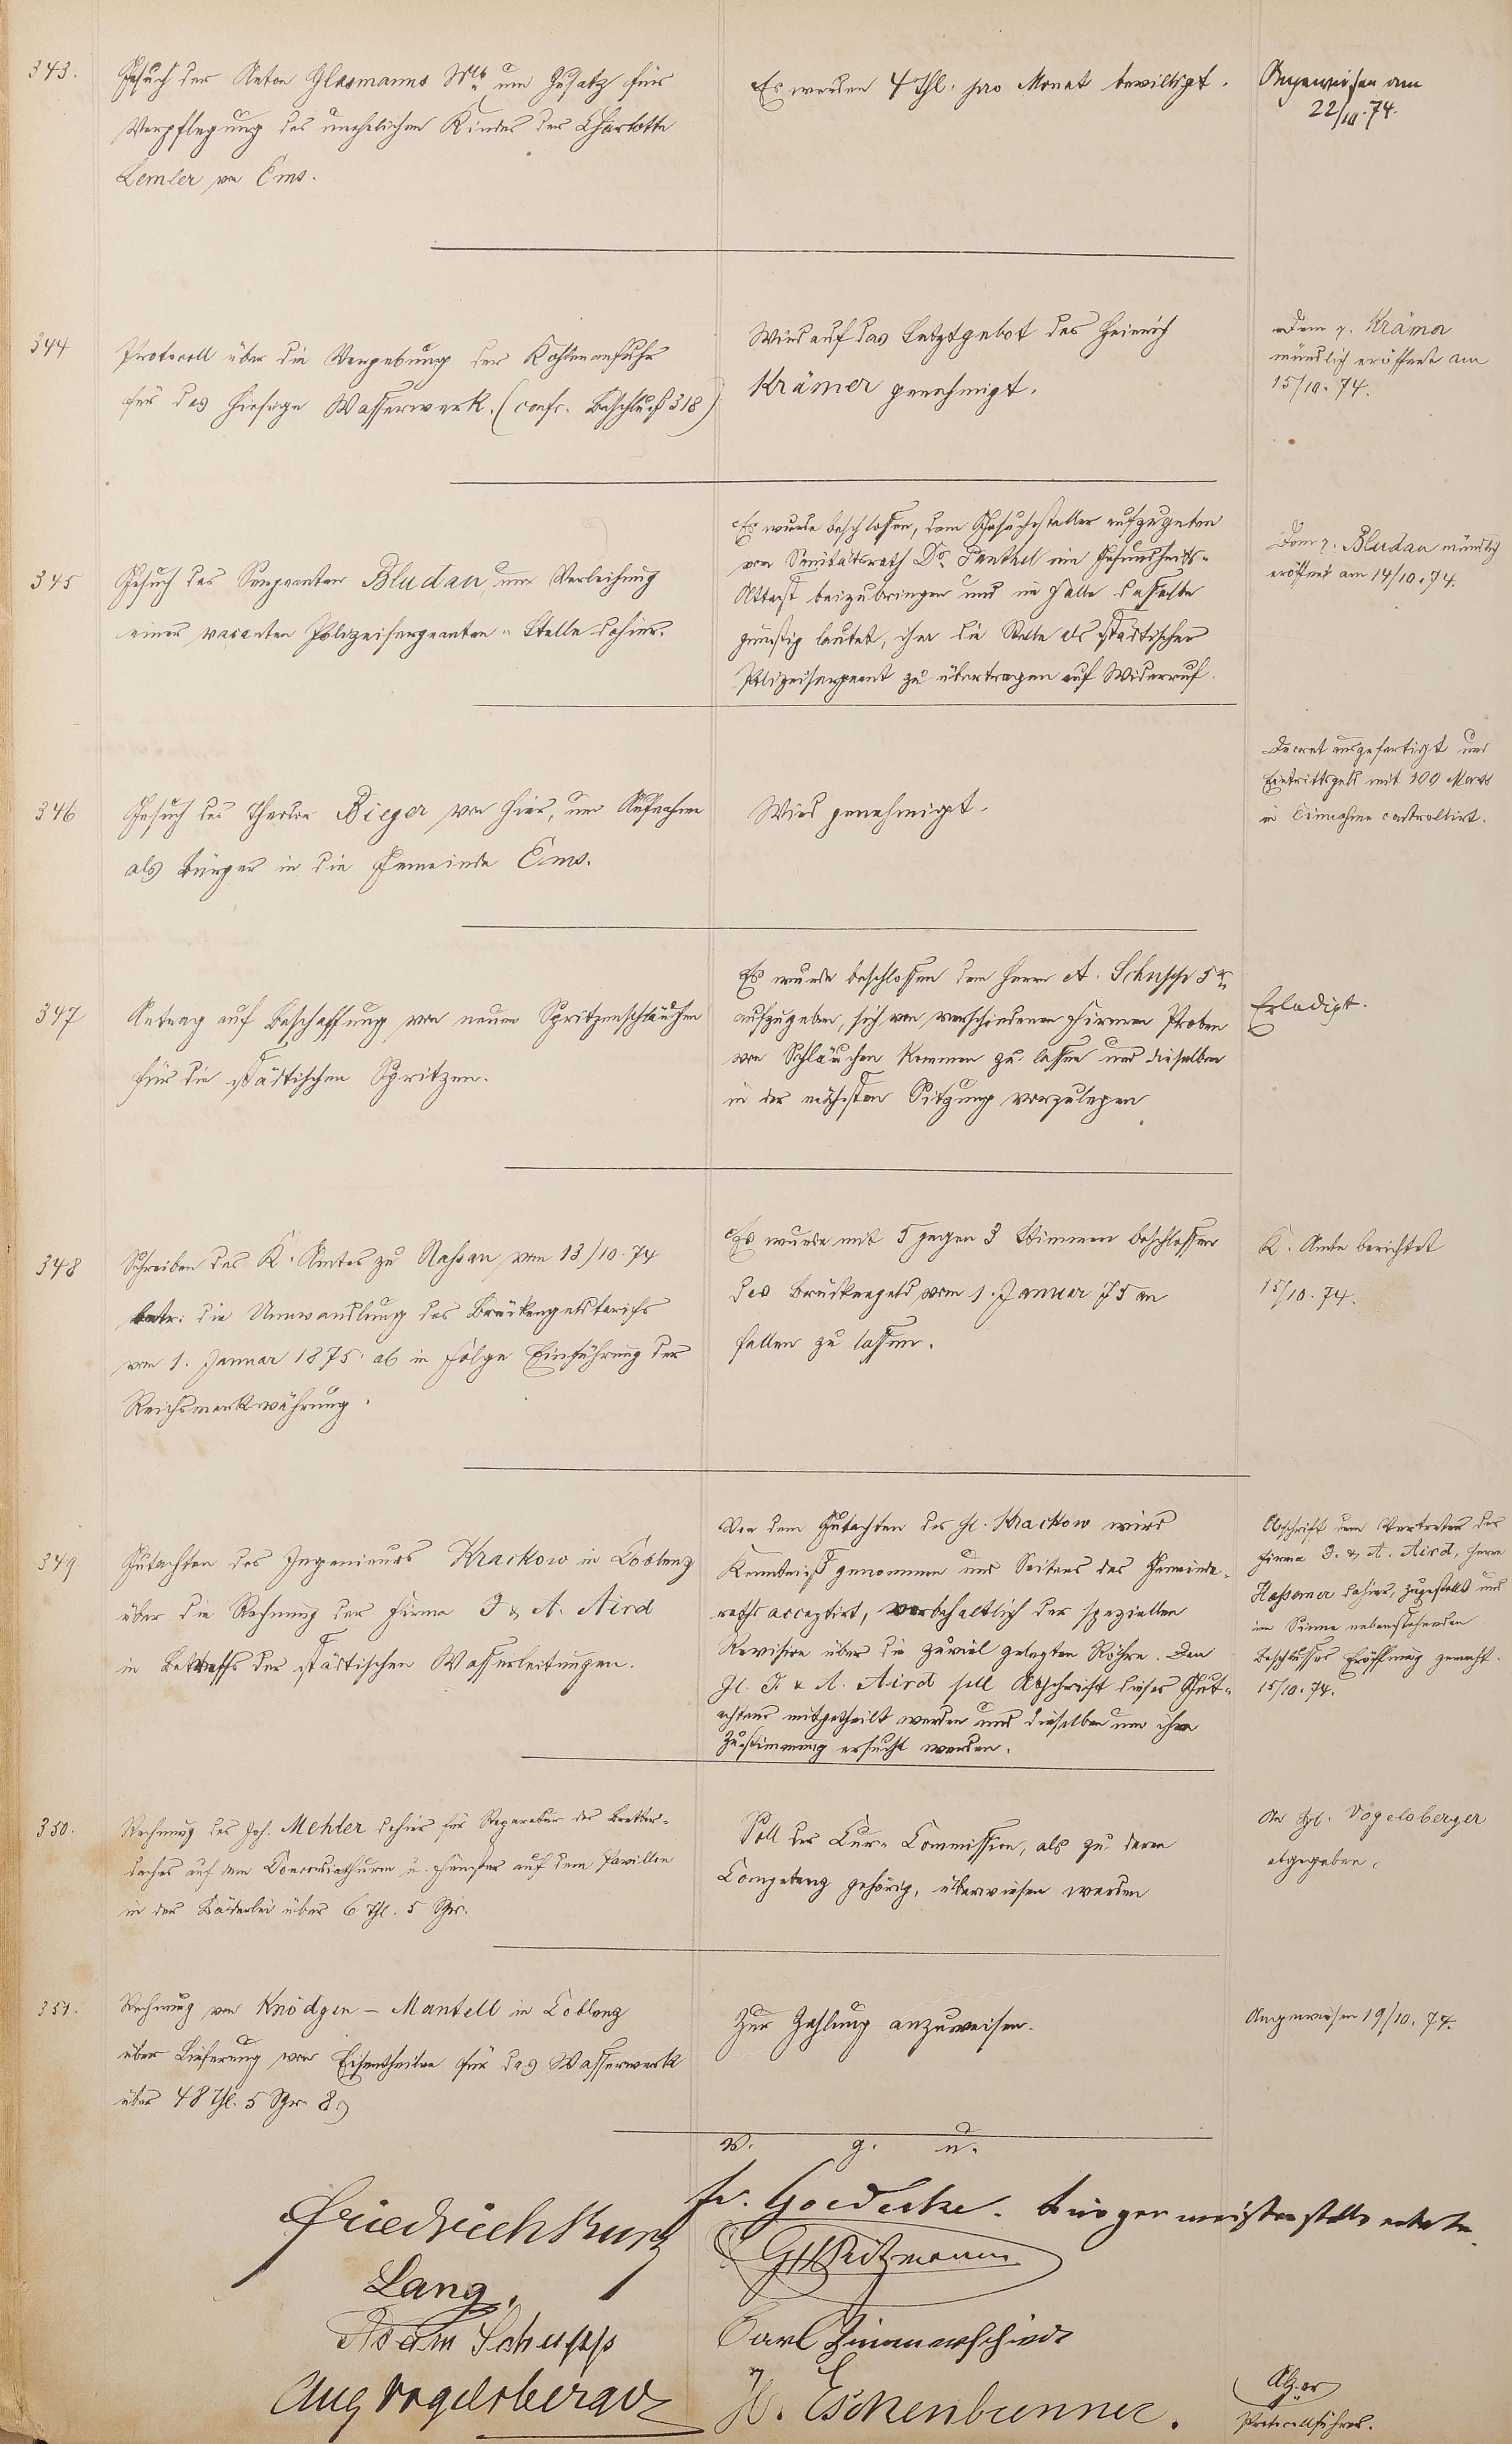 343.
Gesuch der Anton Glasmanns Wtb um Zusatz für
Verpflegung des unehelichen Kindes der Charlotte
Lemler von Ems.
Es werden 4 Thl. pro Monat bewilligt.
Angewiesen am
22/10.74.
344
Protocoll über die Vergebung der Kohlenanfuhr
für das hiesige Wasserwerk. (confr. Beschluß 318)
Wird auf das Letztgebot des Heinrich
Krämer genehmigt.
Dem p. Krämer
mündlich eröffnet am
15/10.74.
345
Gesuch des Sergeanten Bludau, um Verleihung
einer vacanten Polizeisergeanten-Stelle dahier.
Es wurde beschlossen, dem Gesuchsteller aufzugeben
von Sanitätsrath Dr. Panthel ein Gesundheits-
Attest beizubringen und im Falle dasselbe
günstig lautet, ihm die Stelle als städtischer
Polizeisergeant zu übertragen auf Widerruf.
Dem p. Bludau mündlich
eröffnet am 14/10.74.
346
Gesuch des Theodor Bieger von hier, um Aufnahme
als Bürger in die Gemeinde Ems.
Wird genehmigt.
Decret ausgefertigt und
Eintrittsgeld mit 100 Mark
in Einnahme controllirt.
347
Antrag auf Beschaffung von neuen Spritzenschläuchen
für die städtischen Spritzen.
Es wurde beschlossen dem Herrn A. Schupp 5r
aufzugeben, sich von verschiedenen Firmen Proben
von Schläuchen kommen zu lassen und dieselben
in der nächsten Sitzung vorzulegen
Erledigt.
348
Schreiben des K. Amtes zu Nassau, vom 13/10.74
betr. die Umwandlung des Brückengeldtarifs
vom 1. Januar 1875 ab in Folge Einführung der
Reichsmarkwährung.
Es wurde mit 5 gegen 3 Stimmen beschlossen
das Brückengeld vom 1. Januar 75 an
fallen zu lassen.
K. Amte berichtet
15/10.74.
349
Gutachten des Ingenieurs Krackow in Coblenz
über die Rechnung der Firma J. & A. Aird
in Betreffs der städtischen Wasserleitungen.
Von dem Gutachten des H. Krackow wird
Kenntniß genommen und Seitens des Gemeinde-
raths acceptirt, vorbehaltlich der speziellen
Revision über die zuviel gelegten Röhre. Den
H. J. & A. Aird soll Abschrift dieses Gut-
achtens mitgetheilt werden und dieselben um ihre
Zustimmung ersucht werden.
Abschrift dem Vertreter der
Firma J. & A. Aird, Herrn
dahier, zugestellt und
im Sinne nebenstehenden
Beschlusses Eröffnung gemacht.
15/10.74.
350.
Rechnung des Joh. Mehler dahier für Reparatur des Bretter-
daches auf dem Concordiathurm u. Fenster auf dem Pavillon
in der Bäderlei über 6 Thl. 5 Sgr.
Soll der Cur-Commission, als zu deren
Competenz gehörig, überwiesen werden
An H. Vogelsberger
abgegeben.
351.
Rechnung von Knödgen-Mantell in Coblenz
über Lieferung von Eisentheilen für das Wasserwerk
über 48 Thl. 5 Sgr. 8 d
Zur Zahlung anzuweisen.
Angewiesen 19/10.74.
v. g. u.
Friedrich Kurz
Fr. Goedecke. Bürgermeisterstellvertreter
Lang.
Adam Schupp
Carl Zimmerschied
Aug Vogelsberger
H. Eschenbrenner.
Protocollführer.